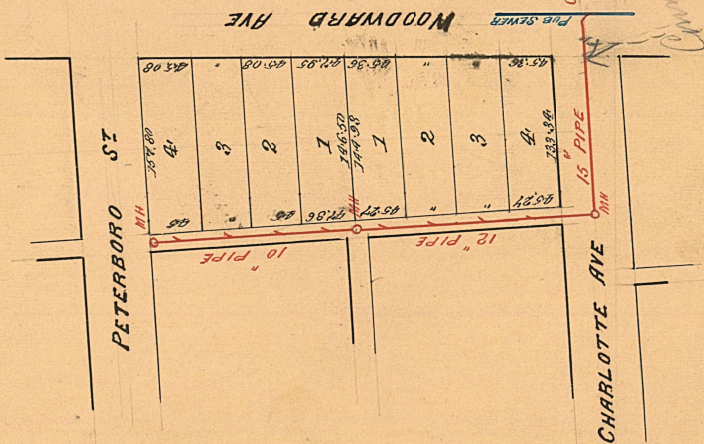 WOODWARD AVE
PUB SEWER
PETERBORO ST
CHARLOTTE AVE
45.08 " 45.08 47.95 45.36 " " 45.36
157.80
4 3 2 1 1 2 3 4
146.50
144.93
133.34
45 " 45 47.86 45.27 " " 45.27
MH
MH
MH
10" PIPE
12" PIPE
15" PIPE